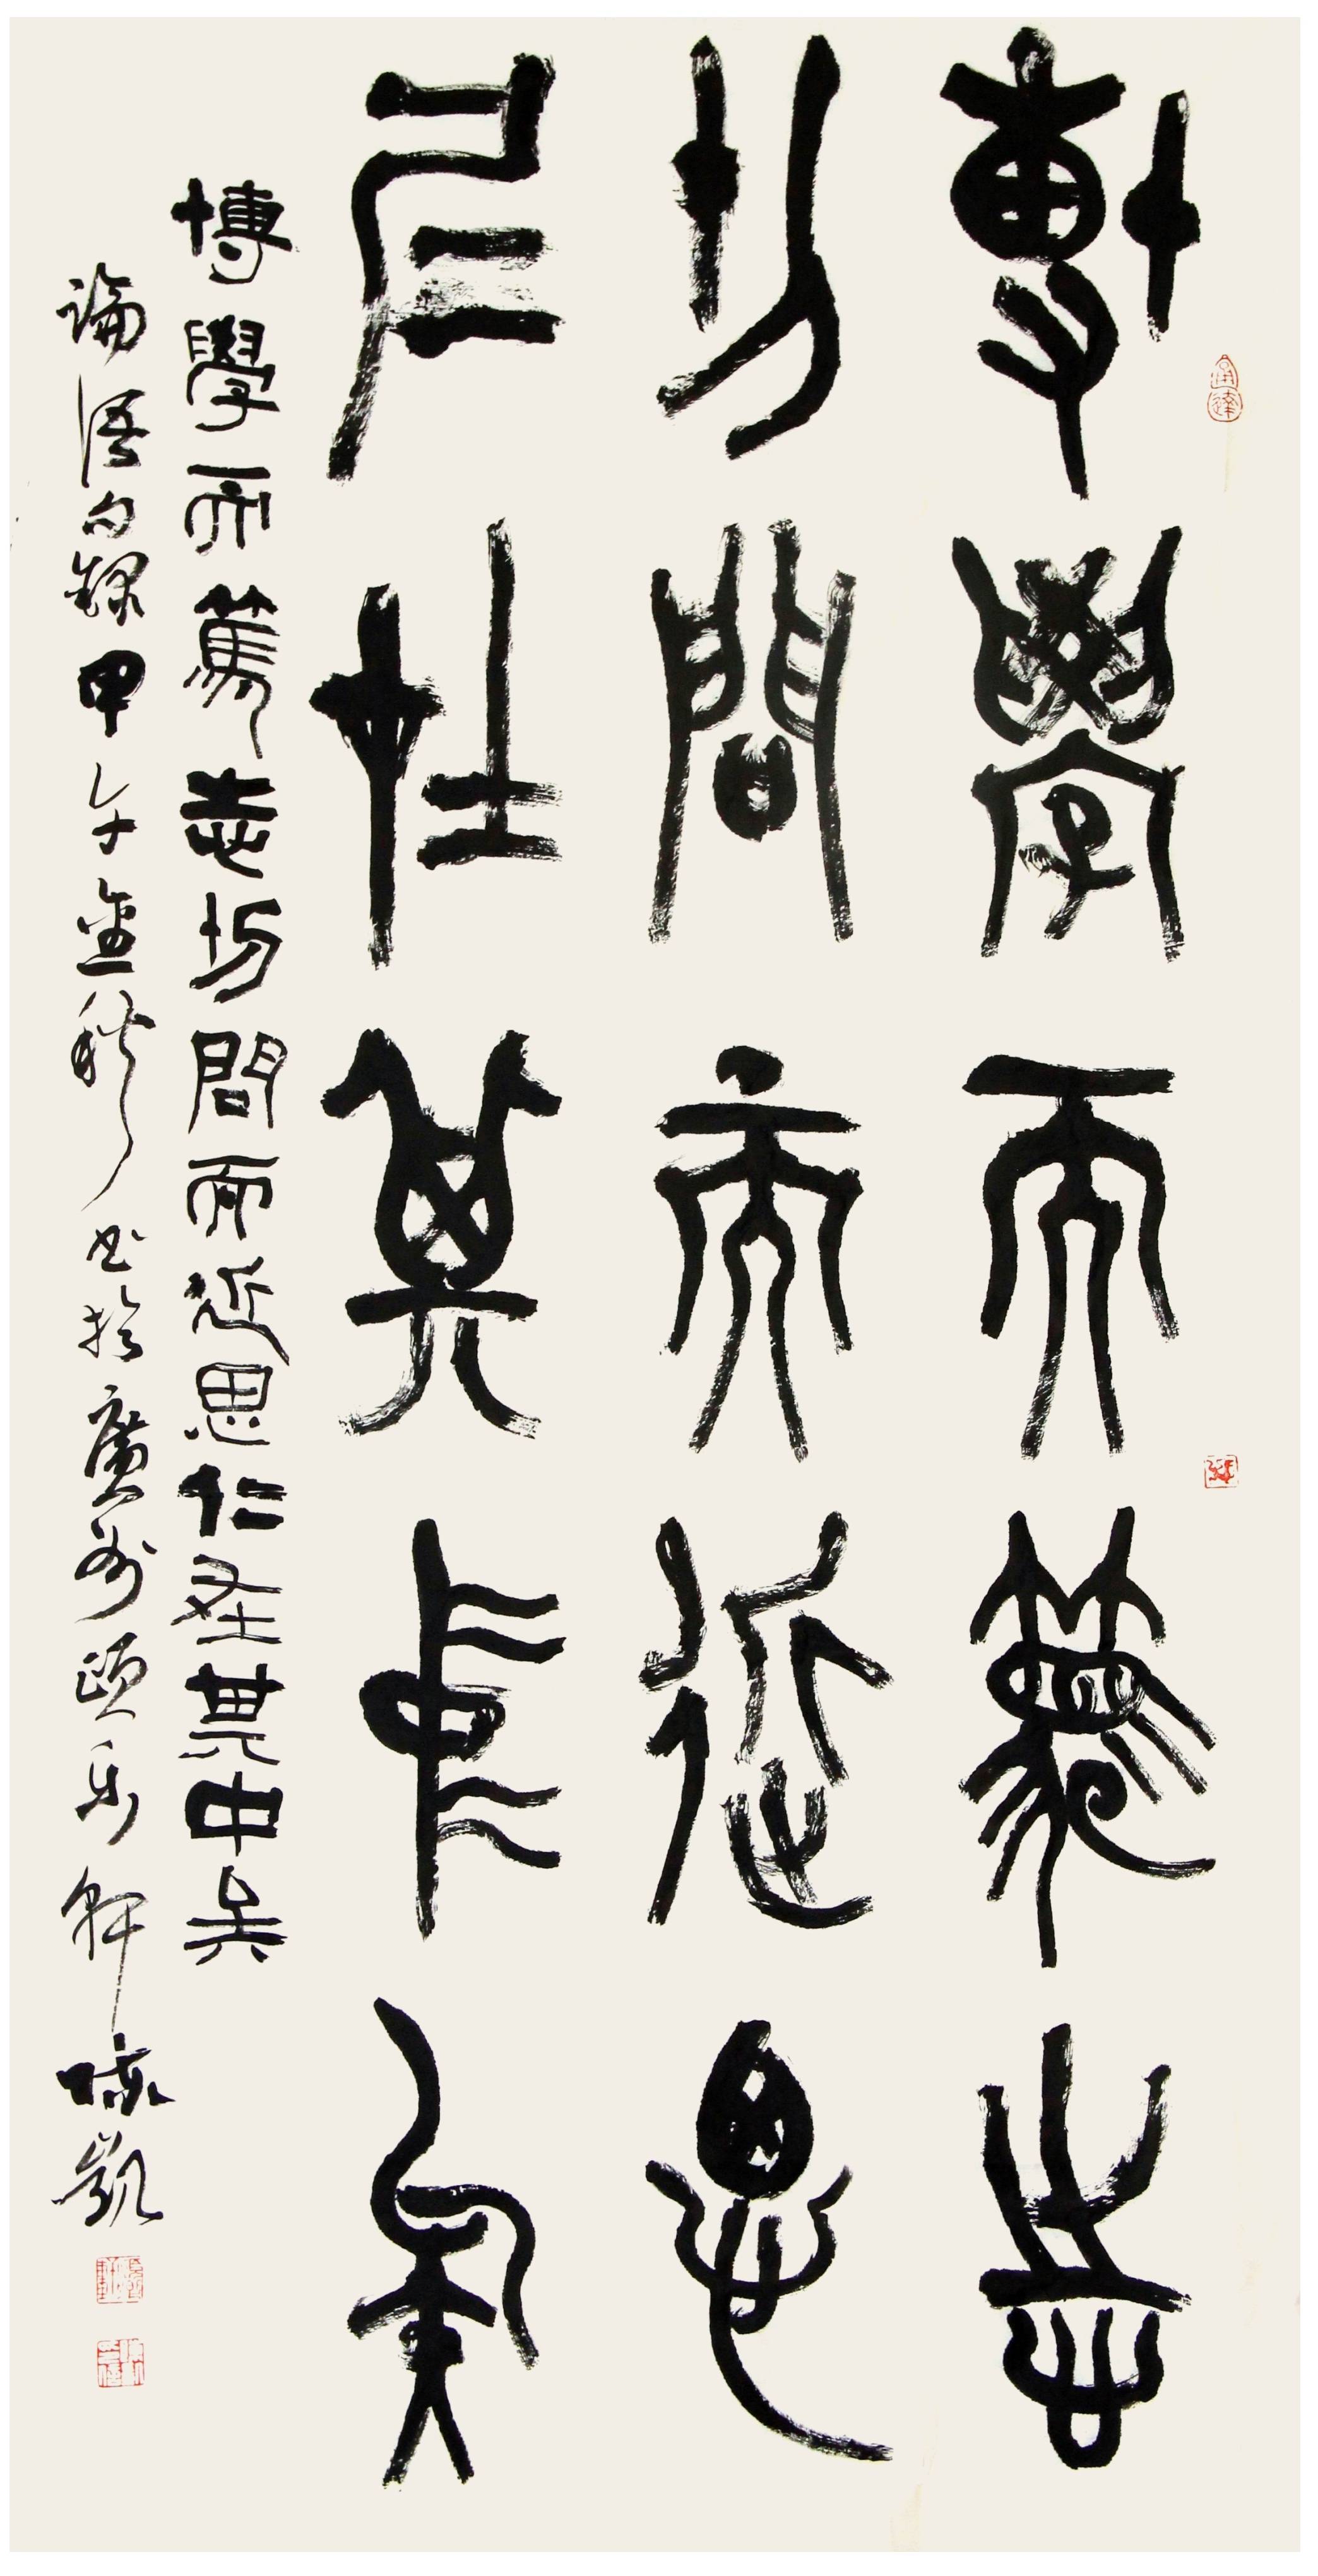 博學而篤志
切問而近思
仁在其中矣
博學而篤志切問而近思仁在其中矣
論語句錄甲午金秋書於廣州頤東軒